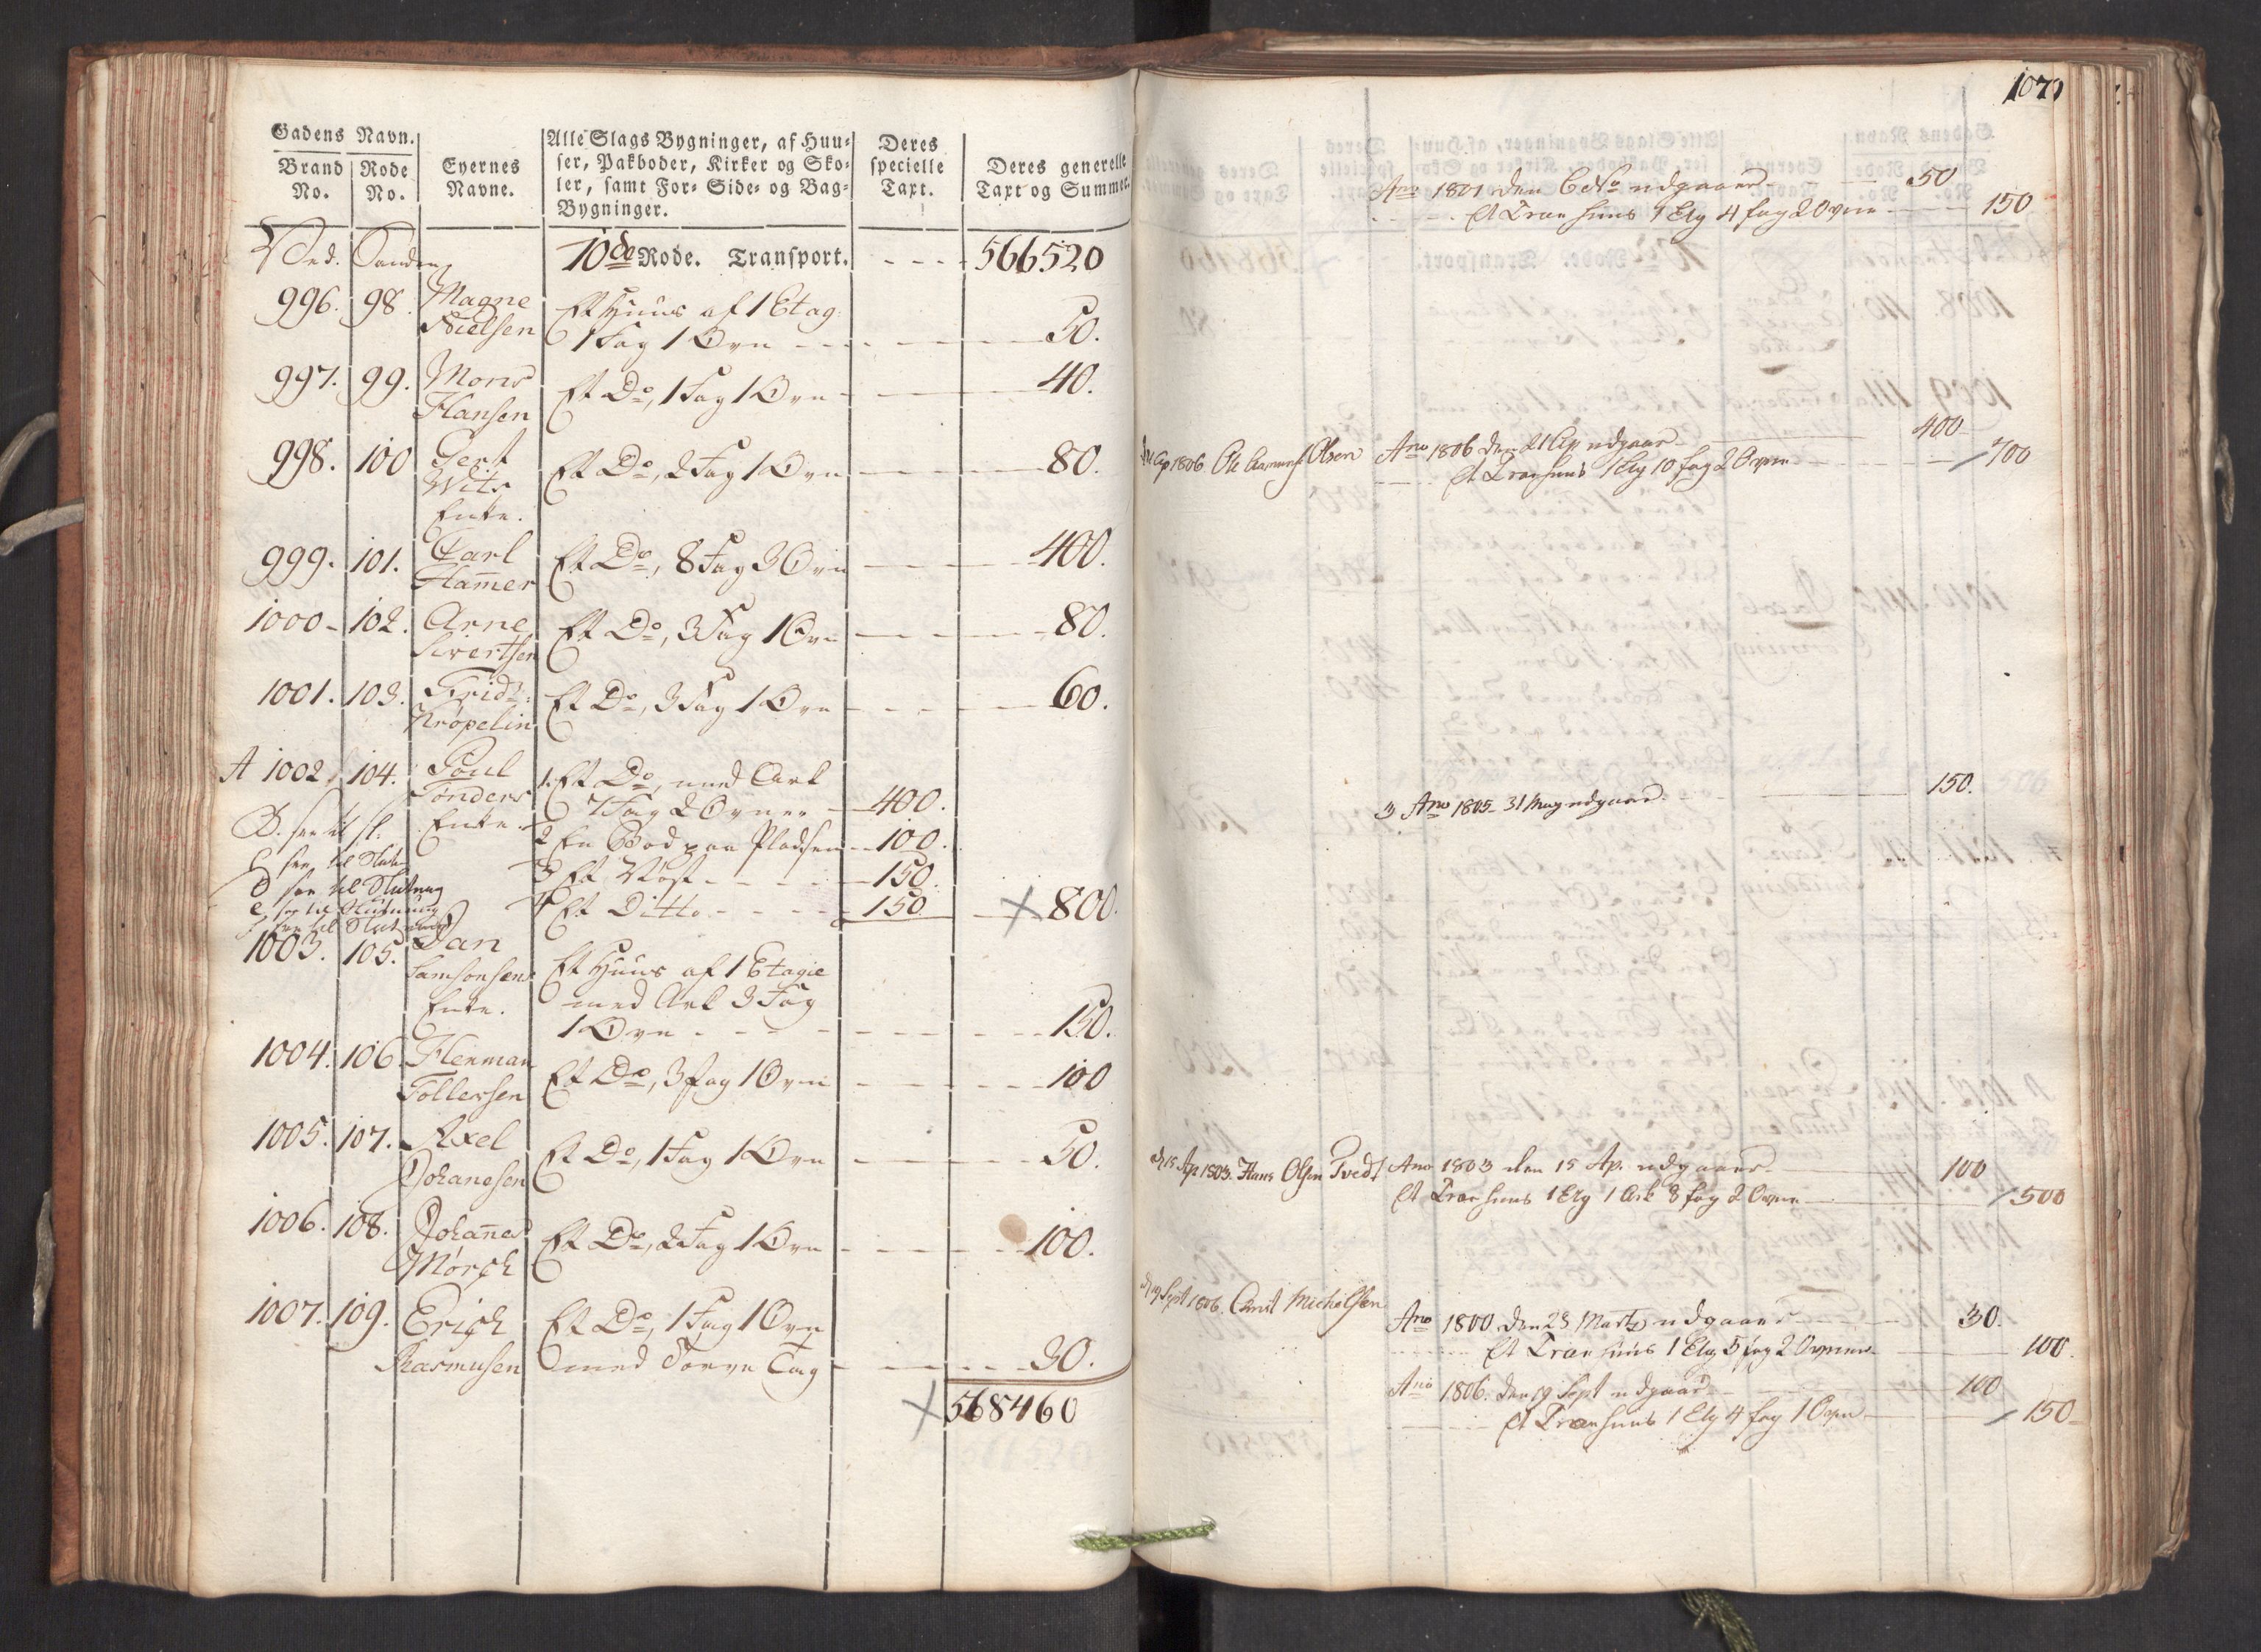 Gadens Navn.
Brand No. Rode No. Eyernes Navne. Alle Slags Bygninger, af Huu-
ser, Pakboder, Kirker og Sko-
ler, samt For- Side- og Bag-
Bygninger. Deres specielle Taxt. Deres generelle Taxt og Summer.
Ved Sanden 10de Rode. Transport. 566520
996. 98. Magne Et Huus af 1 Etag
Nielsen 1 Fag 1 Ovn 50.
997. 99. Mons Et Do, 1 Fag 1 Ovn 40.
Hansen
998. 100 Gert Et Do, 2 Fag 1 Ovn 80.
Wits
Enke.
999. 101. Carl Et Do, 8 Fag 3 Ovn 400.
Hamer
1000 102. Arne Et Do, 3 Fag 1 Ovn 80.
Sivertsen
1001. 103. Fridr: Et Do, 3 Fag 1 Ovn 60.
Krøpelin
A 1002 104. Poul 1. Et Do, med Ark
Tønders 7 Fag 2 Ovner 400.
B. see til Sl: Enke. 2 En Bod paa Pladsen 100.
C see til Slutn 3 Et Nøst 150.
D see til Slutning 4 Et Ditto 150. 800.
E see til Slutning
F see til Slutning
1003. 105. Jan Et Huus af 1 Etagie
Samsonsens med Ark 3 Fag
Enke. 1 Ovn 150.
1004. 106 Herman Et Do, 3 fag 1 Ovn 100
Tollersen
1005. 107. Axel Et Do, 1 Fag 1 Ovn 50.
Johanesen
1006. 108. Johannes Et Do, 2 Fag 1 Ovn 100.
Mørch
1007. 109. Erich Et Do, 1 Fag 1 Ovn
Rasmusen med Torve Tag 30.
568460
1070
Ano 1801 den 6 udgaaer 50
Et Træ huus 1 Etg 4 fag 2 Ovne 150
Ap 1806 Ole Olsen Ano 1806 den 21 Ap udgaar 400
Et Træ huus 1 Etg 10 fag 2 Ovne 700
3 Ano 1805 31 May udgaaer 150.
d 15 Ap 1803. Hans Olsen Tvedt Ano 1803 den 15 Ap. udgaaer 100
Et Træ huus 1 Etg 1 Ark 8 fag 2 Ovne 500
d 19 Sept 1806. Michelsen
Ano 1800 den 28 Marts udgaaer 30.
Et Træ huus 1 Etg 5 fag 2 Ovne 100.
Ano 1806. den 19 Sept udgaar 100
Et Træ huus 1 Etg 4 fag 1 Ovn 150